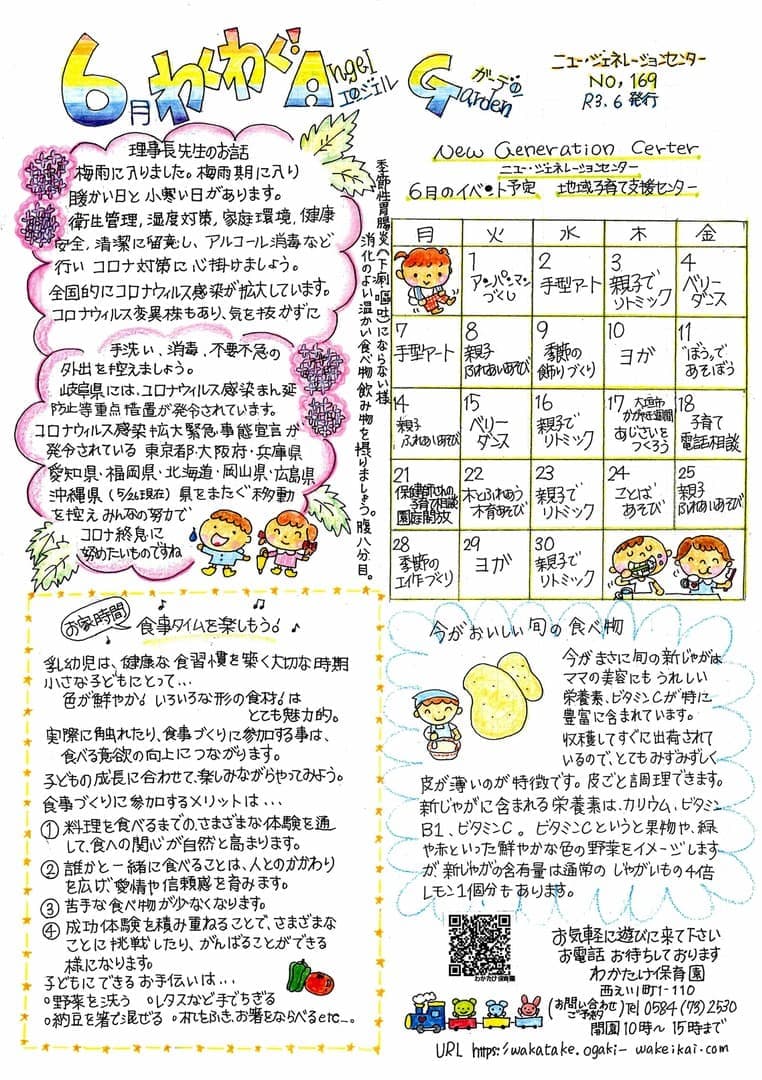 6月わくわく!Angel Garden
エンジェル ガーデン
ニュー・ジェネレーションセンター
NO,169
R3.6発行
理事長先生のお話
梅雨に入りました。梅雨期に入り
暖かい日と小寒い日があります。
衛生管理,湿度対策,家庭環境,健康
安全,清潔に留意し、アルコール消毒など
行いコロナ対策に心掛けましょう。
全国的にコロナウィルス感染が拡大しています。
コロナウィルス変異株もあり、気を抜かずに
手洗い、消毒、不要不急の
外出を控えましょう。
岐阜県には、コロナウィルス感染まん延
防止等重点措置が発令されています。
コロナウィルス感染拡大緊急事態宣言が
発令されている 東京都・大阪府・兵庫県
愛知県・福岡県・北海道・岡山県・広島県
沖縄県(5/26現在)県をまたぐ移動
を控えみんなの努力で
コロナ終息に
努めたいものですね
季節性胃腸炎(下痢・嘔吐)にならない様
消化のよい温かい食べ物飲み物を摂りましょう。腹八分目。
New Generation Certer
ニュー・ジェネレーションセンター
6月のイベント予定 地域子育て支援センター
月 火 水 木 金
1 アンパンマンづくし
2 手型アート
3 親子でリトミック
4 ベリーダンス
7 手型アート
8 親子ふれあいあそび
9 季節の飾りづくり
10 ヨガ
11 "ぼう"であそぼう
14 親子ふれあいあそび
15 ベリーダンス
16 親子でリトミック
17 大垣市かがやき活動 あじさいをつくろう
18 子育て電話相談
21 保健師さんの子育て相談 園庭開放
22 木とふれあう木育あそび
23 親子でリトミック
24 ことばあそび
25 親子ふれあいあそび
28 季節の工作づくり
29 ヨガ
30 親子でリトミック
お家時間 食事タイムを楽しもう♪
乳幼児は、健康な食習慣を築く大切な時期
小さな子どもにとって…
色が鮮やか!いろいろな形の食材!は
とても魅力的。
実際に触れたり、食事づくりに参加する事は、
食べる意欲の向上につながります。
子どもの成長に合わせて、楽しみながらやってみよう。
食事づくりに参加するメリットは…
① 料理を食べるまでの、さまざまな体験を通
して、食への関心が自然と高まります。
② 誰かと一緒に食べることは、人とのかかわり
を広げ愛情や信頼感を育みます。
③ 苦手な食べ物が少なくなります。
④ 成功体験を積み重ねることで、さまざまな
ことに挑戦したり、がんばることができる
様になります。
子どもにできるお手伝いは…
○野菜を洗う ○レタスなど手でちぎる
○納豆を箸で混ぜる ○机をふき、お箸をならべるetc…。
今がおいしい旬の食べ物
今がまさに旬の新じゃがは
ママの美容にもうれしい
栄養素、ビタミンCが特に
豊富に含まれています。
収穫してすぐに出荷されて
いるので、とてもみずみずしく
皮が薄いのが特徴です。皮ごと調理できます。
新じゃがに含まれる栄養素は、カリウム、ビタミン
B1、ビタミンC。ビタミンCというと果物や、緑
や赤といった鮮やかな色の野菜をイメージします
が、新じゃがの含有量は通常のじゃがいもの4倍
レモン1個分もあります。
わかたけ保育園
お気軽に遊びに来て下さい
お電話お待ちしております
わかたけ保育園
西之川町1-110
(お問い合わせご予約)Tel 0584(73)2530
開園10時〜15時まで
URL https://wakatake.ogaki-wakeikai.com